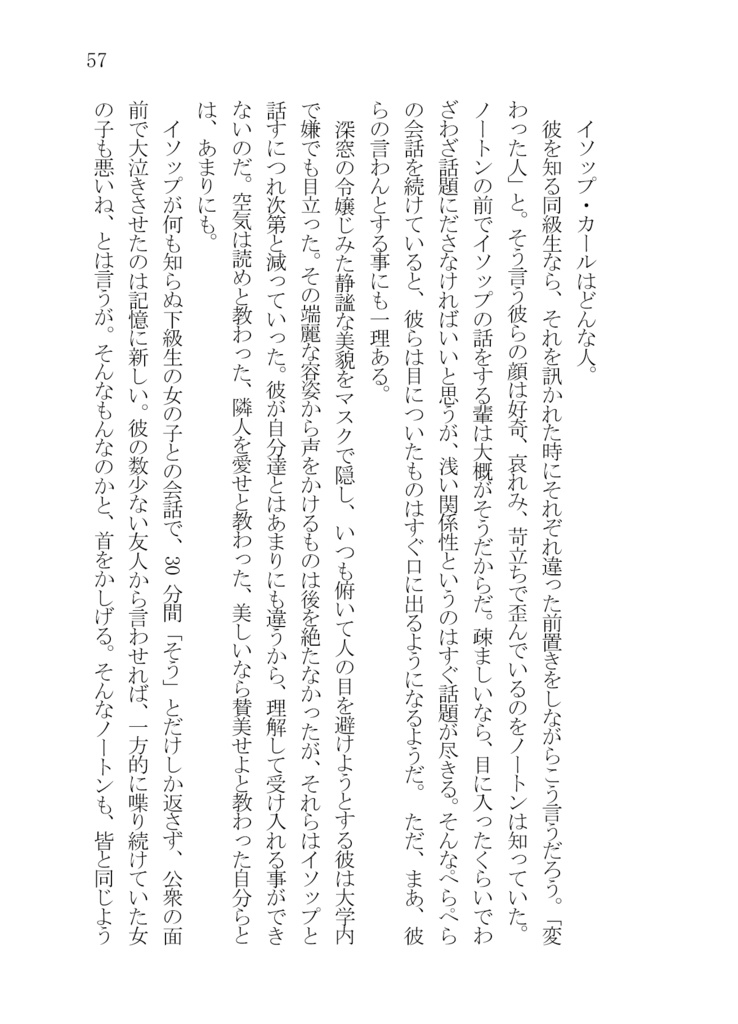 57
イソップ・カールはどんな人。
彼を知る同級生なら、それを訊かれた時にそれぞれ違った前置きをしながらこう言うだろう。「変
わった人」と。そう言う彼らの顔は好奇、哀れみ、苛立ちで歪んでいるのをノートンは知っていた。
ノートンの前でイソップの話をする輩は大概がそうだからだ。疎ましいなら、目に入ったくらいでわ
ざわざ話題にださなければいいと思うが、浅い関係性というのはすぐ話題が尽きる。そんなぺらぺら
の会話を続けていると、彼らは目についたものはすぐ口に出るようになるようだ。　ただ、まあ、彼
らの言わんとする事にも一理ある。
深窓の令嬢じみた静謐な美貌をマスクで隠し、いつも俯いて人の目を避けようとする彼は大学内
で嫌でも目立った。その端麗な容姿から声をかけるものは後を絶たなかったが、それらはイソップと
話すにつれ次第と減っていった。彼が自分達とはあまりにも違うから、理解して受け入れる事ができ
ないのだ。空気は読めと教わった、隣人を愛せと教わった、美しいなら賛美せよと教わった自分らと
は、あまりにも。
イソップが何も知らぬ下級生の女の子との会話で、30 分間「そう」とだけしか返さず、公衆の面
前で大泣きさせたのは記憶に新しい。彼の数少ない友人から言わせれば、一方的に喋り続けていた女
の子も悪いね、とは言うが。そんなもんなのかと、首をかしげる。そんなノートンも、皆と同じよう